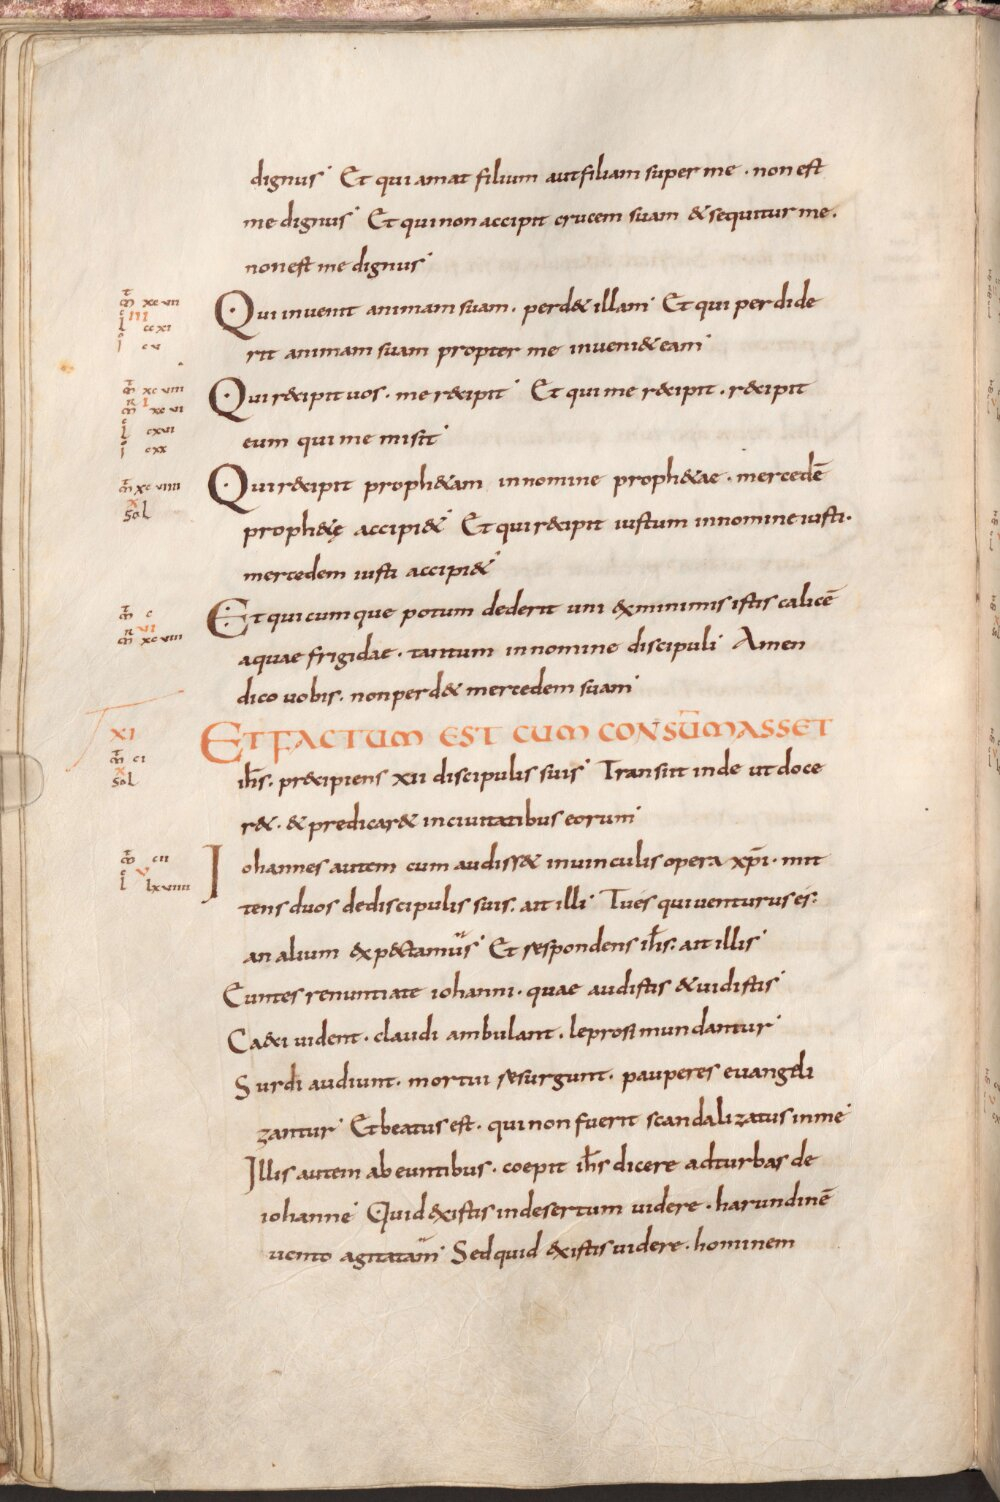 dignus Et qui amat filium aut filiam super me · non est
me dignus Et qui non accipit crucem suam & sequitur me ·
non est me dignus
m̄ xcvii
III
l ccxi
i cv
Qui invenit animam suam · perd& illam Et qui perdide
rit animam suam propter me inveni&eam
m̄ xcviii
R I
m̄ xcvi
l cxvi
i cxx
Qui r&cipit uos · me r&cipit Et qui me r&cipit · r&cipit
eum qui me misit
m̄ xcviiii
X
Sol
Qui r&cipit proph&am in nomine proph&ae · mercedē
proph&ę accipi& Et qui r&cipit iustum in nomine iusti ·
mercedem iusti accipi&
m̄ c
R VI
m̄ xcviii
Et quicumque potum dederit uni ex minimis istis calicē
aquae frigidae · tantum in nomine discipuli Amen
dico uobis · non perd& mercedem suam
XI
ET FACTUM EST CUM CONSŪMASSET
m̄ ci
X
Sol
ih̄s · precipiens xii discipulis suis Transiit inde ut doce
r& · & predicar& in ciuitatibus eorum
m̄ cii
V
l lxviiii
Iohannes autem cum audiss& in uinculis opera xp̄i · mit
tens duos de discipulis suis · ait illi Tu és qui uenturus és :
an alium exp&ctamus Et respondens ih̄s · ait illis
Euntes renuntiate iohanni · quae audistis & uidistis
Ca&ci uident · claudi ambulant · leprosi mundantur
Surdi audiunt · mortui resurgunt · pauperes euangeli
zantur Et beatus est · qui non fuerit scandalizatus in me
Illis autem abeuntibus · coepit ih̄s dicere ad turbas de
iohanne Quid existis in desertum uidere · harundinē
uento agitatam Sed quid existis uidere · hominem